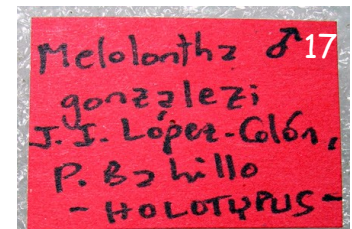 Melolontha ♂ 17
gonzalezi
J. I. López-Colón,
P. Bahillo
- HOLOTYPUS -